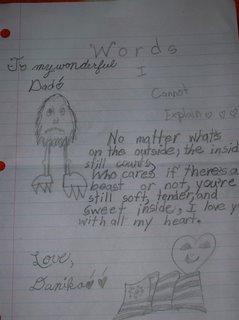 Words
I
Cannot
Explain
To my wonderful
Dad
No matter what's
on the outside, the insid
still counts,
Who cares if there's a
beast or not, you're
still soft, tender, and
sweet inside, I love y
with all my heart.
Love,
Danika